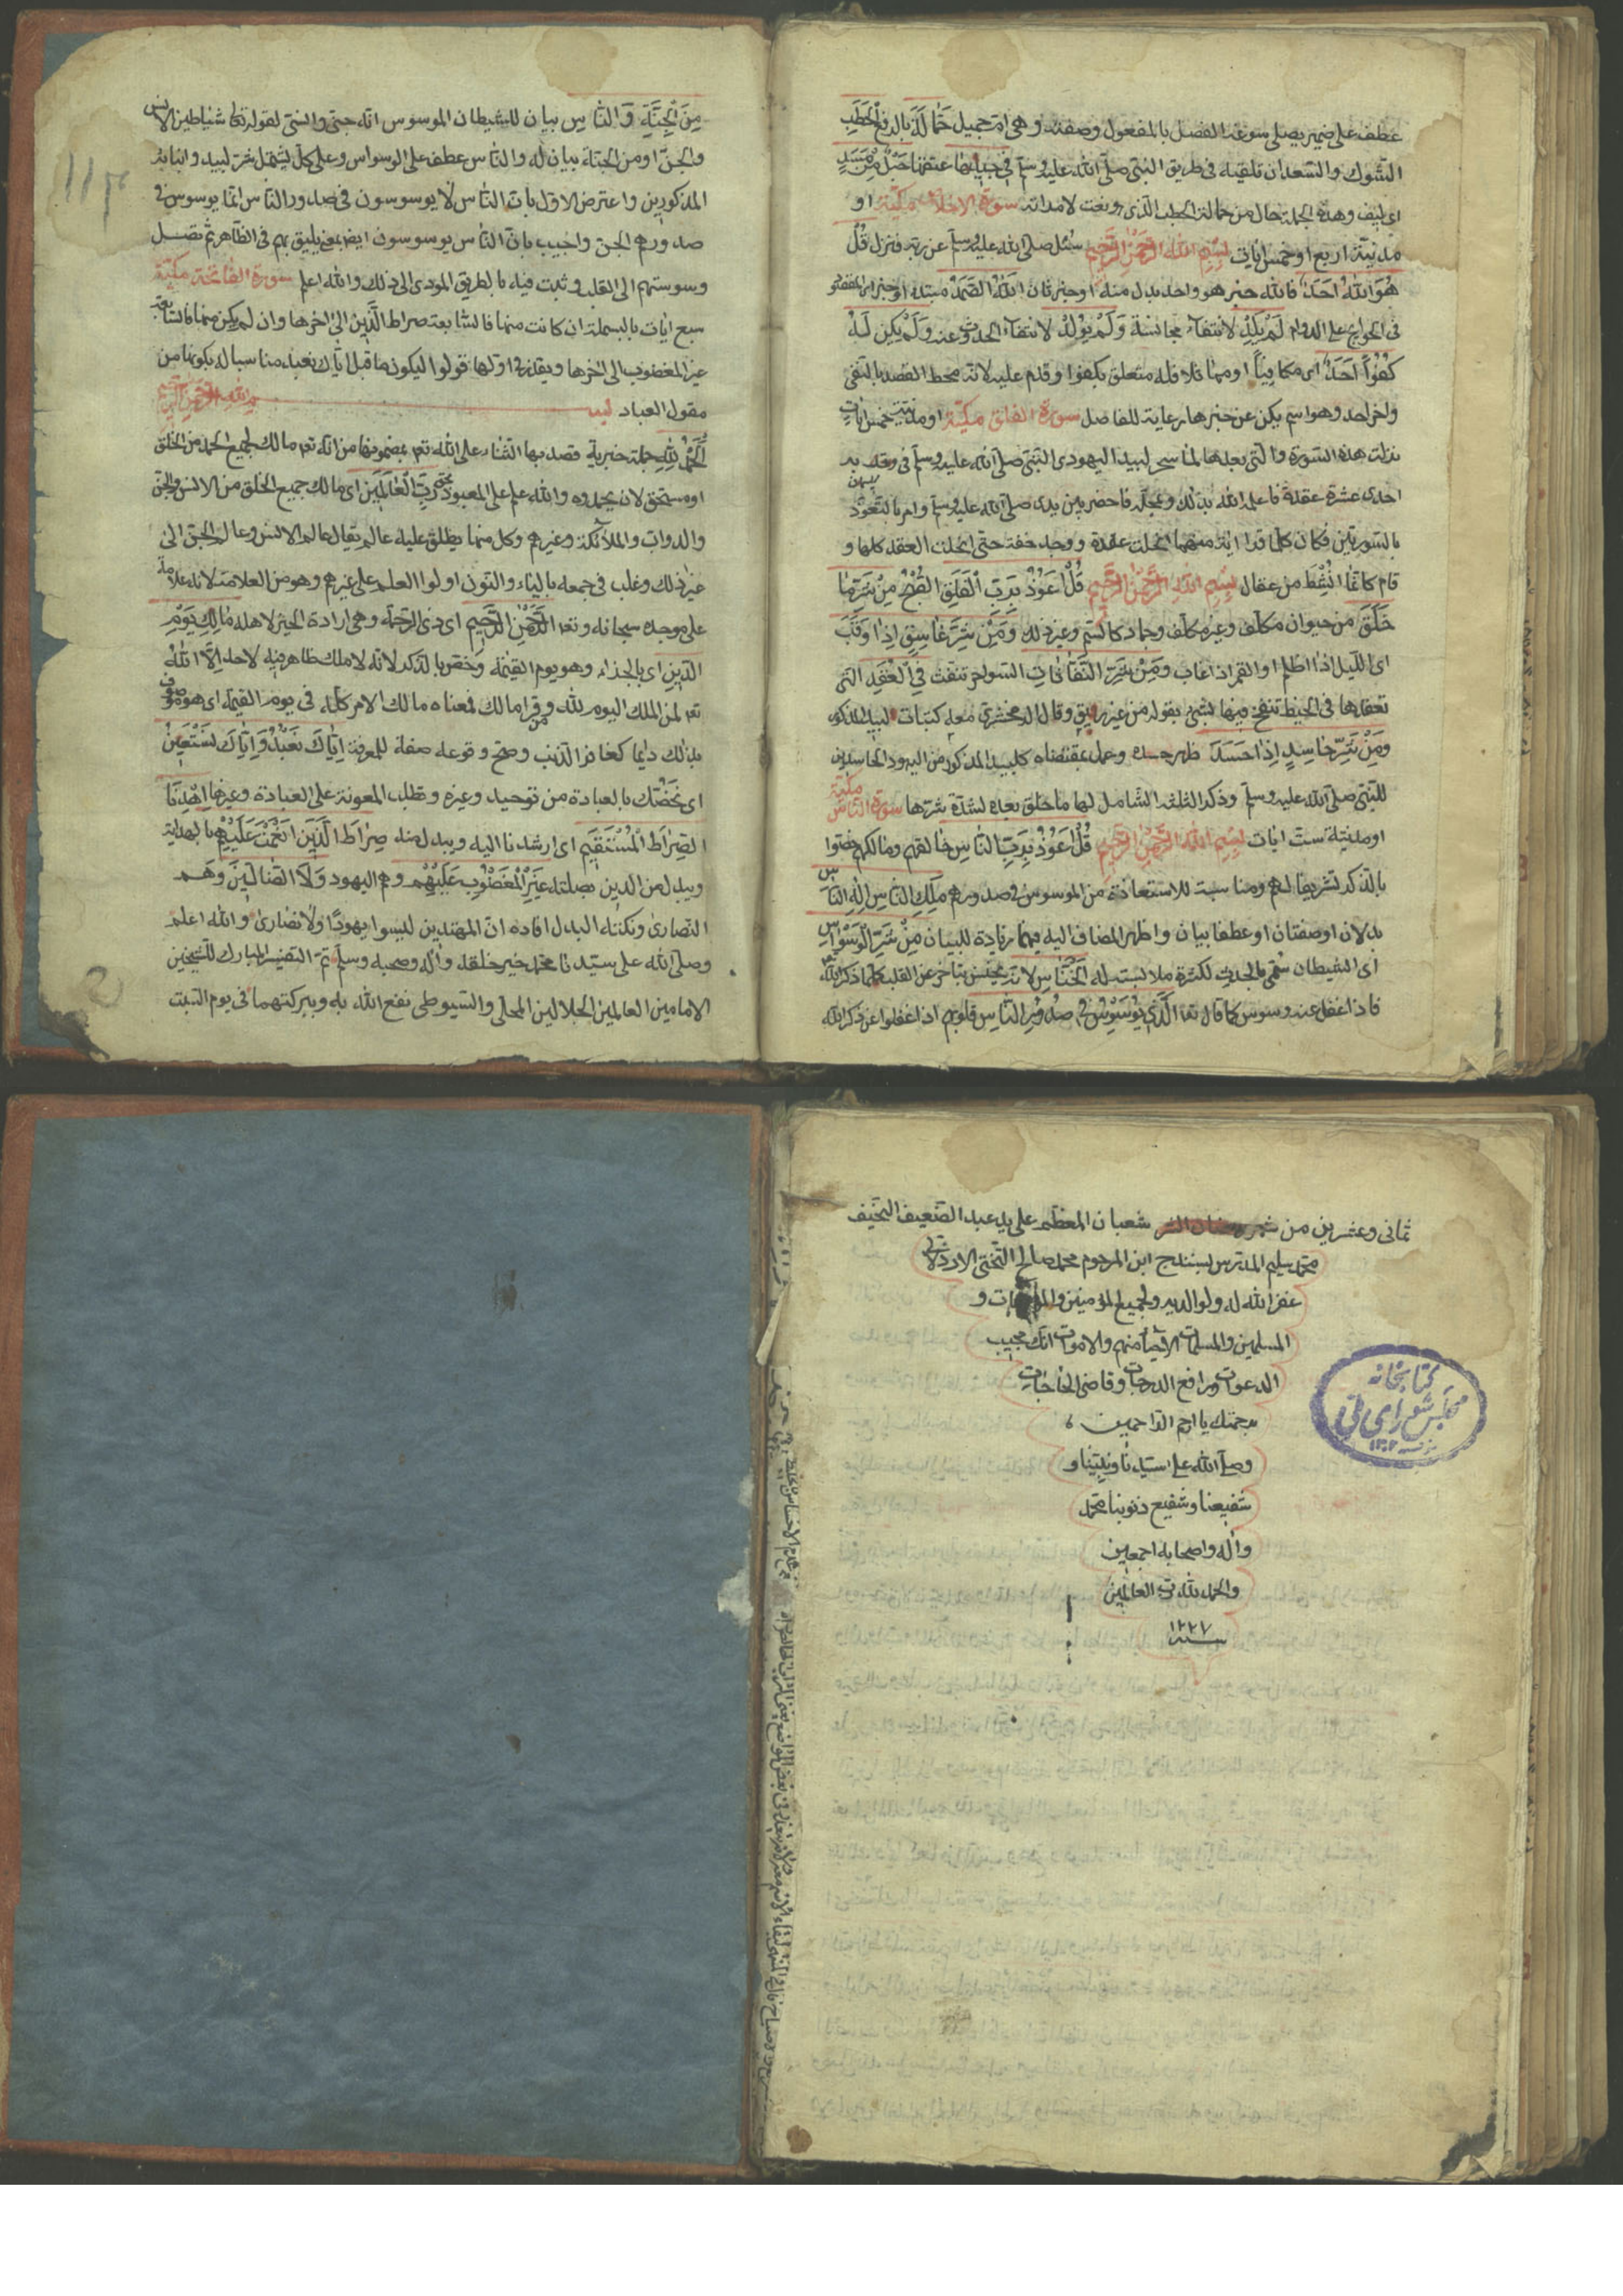 عطف على ضمير يصلى سوغه الفصل بالمفعول وصفته وهى ام جميل حَمَّالَةَ بالرفع الْحَطَبِ
الشوك والسعدان تلقيه فى طريق النبى صلى الله عليه وسلم فِى جِيدِهَا عنقها حَبْلٌ مِنْ مَسَدٍ
اى ليف وهذه الجملة حال من حمالة الحطب الذى هو نعت لامراته سورة الاخلاص مكية او
مدنية اربع او خمس ايات بسم الله الرحمن الرحيم سئل صلى الله عليه وسلم عن ربه فنزل قُلْ
هُوَ اللهُ اَحَدٌ فالله خبر هو واحد بدل منه او خبر ثان اللهُ الصَّمَدُ مبتدا وخبر اى المقصود
فى الحوايج على الدوام لَمْ يَلِدْ لانتفاء مجانسة وَلَمْ يُولَدْ لانتفاء الحدوث عنه وَلَمْ يَكُنْ لَهُ
كُفُواً اَحَدٌ اى مكافيا او مماثلا فله متعلق بكفوا وقدم عليه لانه محط القصد بالنفى
واخر احد وهو اسم يكن عن خبرها رعاية للفاصل سورة الفلق مكية او مدنية خمس ايات
نزلت هذه السورة والتى بعدها لما سحر لبيد اليهودى النبى صلى الله عليه وسلم فى وتر به
احدى عشرة عقدة فاعلمه الله بذلك وبمحله فاحضر بين يدى صلى الله عليه وسلم وامر بالتعوذ
بالسورتين فكان كلما قرا اية منهما انحلت عقدة ووجد خفة حتى انحلت العقد كلها و
قام كانما انشط من عقال بسم الله الرحمن الرحيم قُلْ اَعُوذُ بِرَبِّ الْفَلَقِ الصُّبْحِ مِنْ شَرِّ مَا
خَلَقَ من حيوان مكلف وغير مكلف وجماد كالسم وغير ذلك وَمِنْ شَرِّ غَاسِقٍ اِذَا وَقَبَ
اى الليل اذا اظلم او القمر اذا غاب وَمِنْ شَرِّ النَّفَّاثَاتِ السواحر تنفث فِى الْعُقَدِ التى
تعقدها فى الخيط تنفخ فيها بشئ بقوله من غير ريق وقال الزمخشرى معه كبنات لبيد المذكور
وَمِنْ شَرِّ حَاسِدٍ اِذَا حَسَدَ ظهر حسده وعمل بمقتضاه كلبيد المذكور من اليهود الحاسدين
للنبى صلى الله عليه وسلم وذكر الثلثة الشامل لها ما خلق بعده لشدة شرها سورة الناس مكية
او مدنية ست ايات بسم الله الرحمن الرحيم قُلْ اَعُوذُ بِرَبِّ النَّاسِ خالقهم ومالكهم خصوا
بالذكر تشريفا لهم ومناسبة للاستعاذة من الموسوس فى صدورهم مَلِكِ النَّاسِ اِلهِ النَّاسِ
بدلان او صفتان او عطفا بيان واظهر المضاف اليه فيهما زيادة للبيان مِنْ شَرِّ الْوَسْوَاسِ
اى الشيطان سمى بالحدث لكثرة ملابسته له الْخَنَّاسِ لانه يخنس ويتاخر عن القلب كلما ذكر الله
فاذا غفل عنه وسوس كما قال تعا الَّذِى يُوَسْوِسُ فِى صُدُورِ النَّاسِ قلوبهم اذا غفلوا عن ذكر الله
مِنَ الْجِنَّةِ وَالنَّاسِ بيان للشيطان الموسوس انه جنى وانسى لقوله تعا شياطين الانس
والجن او من الجنة بيان له والناس عطف على الوسواس وعلى كل يشتمل شر لبيد وبناته
المذكورين واعترض الاول بان الناس لا يوسوسون فى صدور الناس انما يوسوس فى
صدورهم الجن واجيب بان الناس يوسوسون ايضا بمعنى يليق بهم فى الظاهر ثم تصل
وسوستهم الى القلب وثبت فيه بالطريق المودى الى ذلك والله اعلم سورة الفاتحة مكية
سبع ايات بالبسملة ان كانت منها فالسابعة صراط الذين الى اخرها وان لم يكن منها فالسابعة
غير المغضوب الى اخرها ويقدر فى اولها قولوا ليكون ما قبل اياك نعبد مناسبا له بكونها من
مقول العباد بسم الله الرحمن الرحيم
اَلْحَمْدُ لِلّهِ جملة خبرية قصد بها الثناء على الله تعم بمضمونها من انه تعم مالك لجميع الحمد من الخلق
او مستحق لان يحمدوه والله علم على المعبود بحق رَبِّ الْعَالَمِينَ اى مالك جميع الخلق من الانس والجن
والدواب والملائكة وغيرهم وكل منها يطلق عليه عالم يقال عالم الانس وعالم الجن الى
غير ذلك وغلب فى جمعه بالياء والنون اولوا العلم على غيرهم وهو من العلامة لانه علامة
على موجده سبحانه وتعا الرَّحْمنِ الرَّحِيمِ اى ذى الرحمة وهى ارادة الخير لاهله مَالِكِ يَوْمِ
الدِّينِ اى بالجزاء وهو يوم القيمة وخص بالذكر لانه لا ملك ظاهر فيه لاحد الا الله
تعم لمن الملك اليوم لله ومن قرا مالك فمعناه مالك الامر كله فى يوم القيمة اى هو موصوف
بذلك دايما كغافر الذنب وصح وقوعه صفة للمعرفة اِيَّاكَ نَعْبُدُ وَاِيَّاكَ نَسْتَعِينُ
اى نخصك بالعبادة من توحيد وغيره ونطلب المعونة على العبادة وغيرها اِهْدِنَا
الصِّرَاطَ الْمُسْتَقِيمَ اى ارشدنا اليه ويبدل منه صِرَاطَ الَّذِينَ اَنْعَمْتَ عَلَيْهِمْ بالهداية
ويبدل من الذين بصلته غَيْرِ الْمَغْضُوبِ عَلَيْهِمْ وهم اليهود وَلَا الضَّالِّينَ وهم
النصارى ونكتة البدل افاده ان المهتدين ليسوا يهودا ولا نصارى والله اعلم
وصلى الله على سيدنا محمد خير خلقه واله وصحبه وسلم تم التفسير المبارك للشيخين
الامامين العالمين الجلالين المحلى والسيوطى نفع الله به وببركتهما فى يوم السبت
ثمانى وعشرين من شهر شعبان المعظم على يد عبد الضعيف النحيف
محمد سليم المدرس بسنندج ابن المرحوم محمد صالح التختى الاردلانى
غفر الله له ولوالديه ولجميع المؤمنين والمؤمنات و
المسلمين والمسلمات الاحياء منهم والاموات انك مجيب
الدعوات ورافع الدرجات وقاضى الحاجات
برحمتك يا ارحم الراحمين
وصلى الله على سيدنا ونبينا و
شفيعنا وشفيع ذنوبنا محمد
واله واصحابه اجمعين
والحمد لله رب العالمين
سنه ١٢٢٧
كتابخانه
مجلس شوراى ملى
١٣٠٢